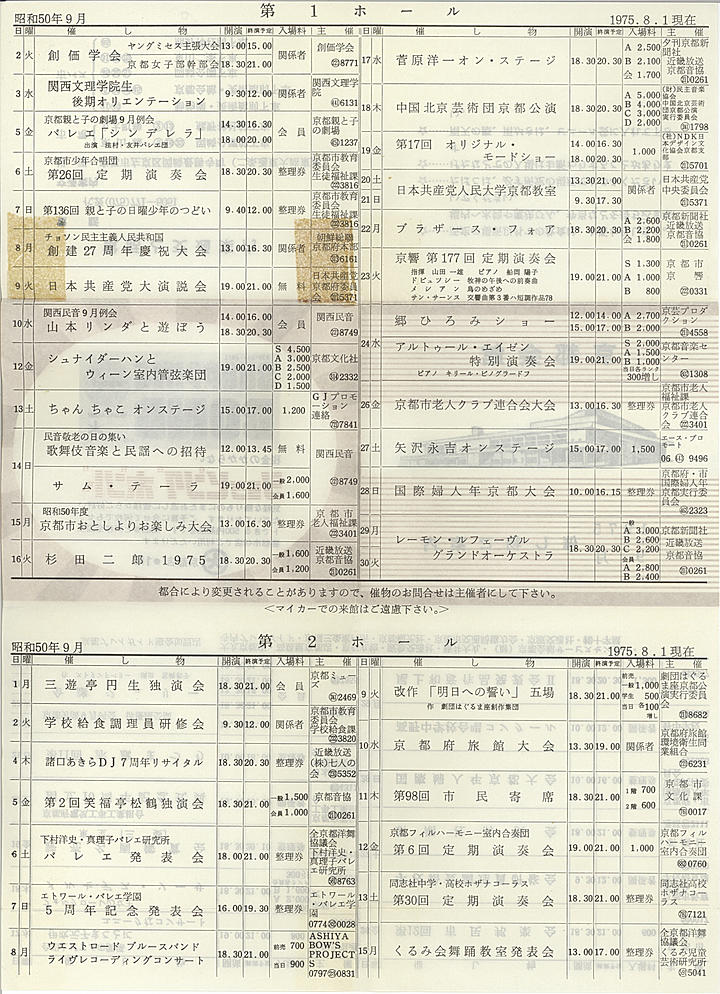 昭和50年9月 第1ホール 1975.8.1現在
日 曜 催し物 開演 終演予定 入場料 主催
2 火 創価学会 ヤングミセス主張大会 13.00 15.00 関係者 創価学会
京都女子部幹部会 18.30 21.00 8771
3 水 関西文理学院生 9.30 12.00 関係者 関西文理学院
後期オリエンテーション 6131
5 金 京都親と子の劇場9月例会 14.30 16.30 会員 京都親と子の劇場
バレエ「シンデレラ」 18.00 20.00 1237
出演 法村・友井バレエ団
6 土 京都市少年合唱団 18.30 20.30 整理券 京都市教育委員会
第26回 定期演奏会 生徒福祉課 3816
7 日 第136回 親と子の日曜少年のつどい 9.40 12.00 整理券 京都市教育委員会
生徒福祉課 3816
8 月 チョソン民主主義人民共和国 13.00 16.30 関係者 朝鮮総聯
創建27周年慶祝大会 京都府本部 6161
9 火 日本共産党大演説会 19.00 21.00 無料 日本共産党京都府委員会 5371
10 水 関西民音9月例会 14.00 16.00 会員 関西民音
山本リンダと遊ぼう 18.30 20.30 8749
12 金 シュナイダーハンと 19.00 21.00 S 4.500 京都文化社
ウィーン室内管弦楽団 A 3.000 B 2.500 C 2.000 D 1.500 2332
13 土 ちゃんちゃこ オンステージ 15.00 17.00 1.200 GJプロモーション連絡 7841
14 日 民音敬老の日の集い 12.00 13.45 無料 関西民音
歌舞伎音楽と民謡への招待
サム・テーラ 19.00 21.00 一般 2.000 8749
会員 1.600
15 月 昭和50年度 13.00 16.30 整理券 京都市
京都市おとしよりお楽しみ大会 老人福祉課 3401
16 火 杉田二郎 1975 18.30 20.30 一般 1.600 近畿放送
会員 1.200 京都音協 0261
日 曜 催し物 開演 終演予定 入場料 主催
17 水 菅原洋一オン・ステージ 18.30 20.30 A 2.500 夕刊京都新聞社
B 2.100 近畿放送
会 1.700 京都音協 0261
18 木 中国北京芸術団京都公演 18.30 20.30 A 5.000 (財)民主音楽協会
B 4.000 中国北京芸術団京都公演
C 3.000 実行委員会
D 2.000 1798
19 金 第17回 オリジナル・ 14.00 16.00 1.000 (社)NDK日本デザイン文化協会京都支部
モードショー 18.00 20.00 5701
20 土 日本共産党人民大学京都教室 13.30 21.00 関係者 日本共産党
21 日 9.30 17.30 中央委員会 5371
22 月 ブラザース・フォア 18.30 20.30 A 2.600 京都新聞社
B 2.200 近畿放送
会 1.800 京都音協 0261
23 火 京響 第177回 定期演奏会 19.00 21.00 S 1.300 京都市
指揮 山田一雄 ピアノ 船岡陽子 A 1.000 京響
ドビュッシー 牧神の午後への前奏曲 B 800 0331
メレシアン 鳥のめざめ
サン・サーンス 交響曲第3番ハ短調作品78
24 水 郷ひろみショー 12.00 14.00 A 2.700 京芸プロダクション
15.00 17.00 B 2.000 4558
アルトゥール・エイゼン 19.00 21.00 S 2.000 京都音楽センター
特別演奏会 A 1.500 B 1.000
ピアノ キリール・ビノグラードフ 当日各ランク300増し 1308
26 金 京都市老人クラブ連合会大会 13.00 16.30 整理券 京都市老人福祉課
京都市老人クラブ連合会 3401
27 土 矢沢永吉オンステージ 15.00 17.00 1,500 エース・プロモート
06 9496
28 日 国際婦人年京都大会 10.00 16.15 整理券 京都府・市
国際婦人年京都実行委員会 2323
29 月 レーモン・ルフェーヴル 18.30 20.30 一般 A 3.000 京都新聞社
30 火 グランドオーケストラ B 2.600 近畿放送
C 2,200 京都音協
会員 A 2.800 0261
B 2.400
都合により変更されることがありますので、催物のお問合せは主催者にして下さい。
<マイカーでの来館はご遠慮下さい。>
昭和50年9月 第2ホール 1975.8.1現在
日 曜 催し物 開演 終演予定 入場料 主催
1 月 三遊亭円生独演会 18.30 21.00 会員 京都ミューズ 2469
2 火 学校給食調理員研修会 9.30 12.00 関係者 京都市教育委員会
学校給食課 3820
4 木 諸口あきらDJ7周年リサイタル 18.30 20.30 整理券 近畿放送
(株)七人の会 5352
5 金 第2回笑福亭松鶴独演会 18.30 21.00 一般 1.500 京都音協
会員 1.000 0261
6 土 下村洋史・真理子バレエ研究所 18.00 21.00 整理券 全京都洋舞協議会
バレエ発表会 下村洋史・真理子バレエ研究所 8763
7 日 エトワール・バレエ学園 16.00 19.30 整理券 エトワール・バレエ学園
5周年記念発表会 0774 0028
8 月 ウエストロード ブルースバンド 18.30 21.00 前売 700 ASHIYA BOW'S PROJECTS
ライヴレコーディングコンサート 当日 900 0797 0831
日 曜 催し物 開演 終演予定 入場料 主催
9 火 改作「明日への誓い」五場 18.30 21.00 前売 一般 1,000 劇団はぐるま座京都公演実行委員会
作 劇団はぐるま座創作集団 学生 500
当日各100増し 8682
10 水 京都府旅館大会 13.30 19.00 関係者 京都府旅館環境衛生同業組合 6231
11 木 第98回 市民寄席 18.30 21.00 1階 700 京都市
2階 600 文化課 0017
12 金 京都フィルハーモニー室内合奏団 19.00 21.00 1.000 京都フィルハーモニー室内合奏団
第6回 定期演奏会 0760
13 土 同志社中学・高校ホザナコーラス 18.30 21.00 整理券 同志社高校ホザナコーラス
第30回 定期演奏会 7121
15 月 くるみ会舞踊教室発表会 13.00 17.00 整理券 全京都洋舞協議会
くるみ児童芸術研究所 5041